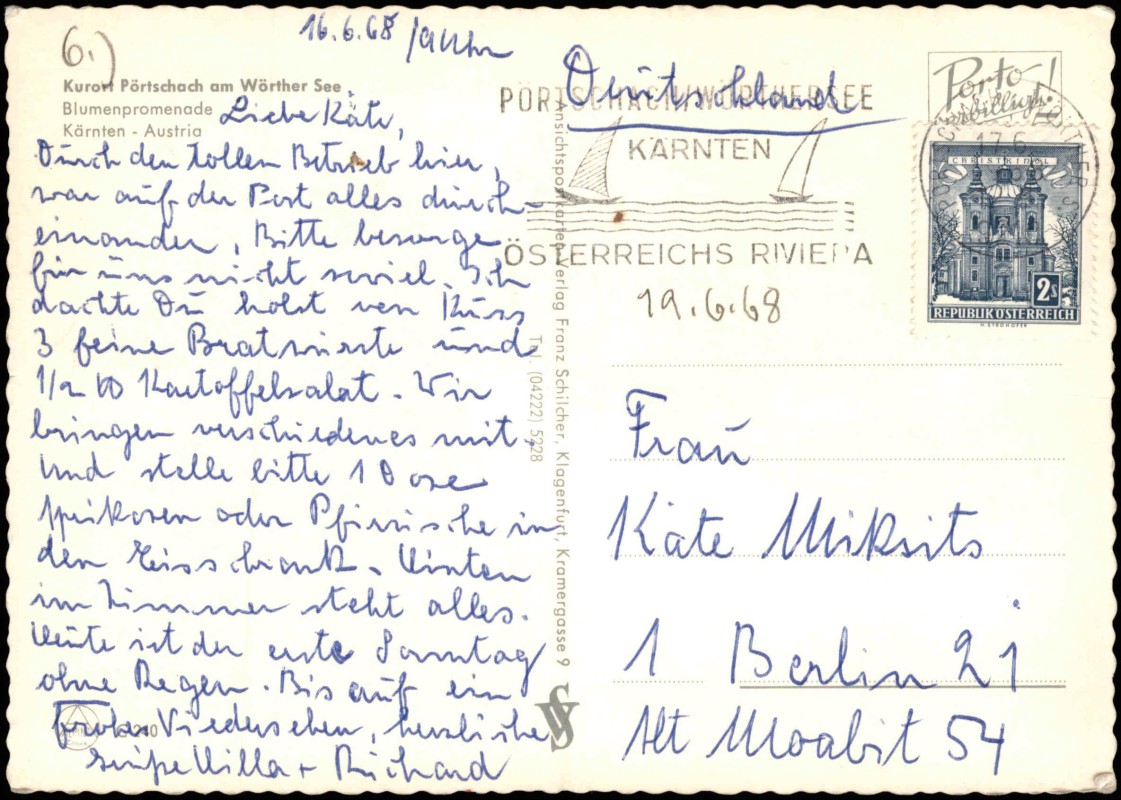 6.)
16.6.68 /9 Uhr
Kurort Pörtschach am Wörther See
Blumenpromenade
Kärnten - Austria
Liebe Käte,
Durch den tollen Betrieb hier,
war auf der Post alles durch-
einander. Bitte besorge
für uns nicht soviel. Ich
dachte Du holst von Kuss
3 feine Bratwürste und
1/2 Kartoffelsalat. Wir
bringen verschiedenes mit,
Und stelle bitte 1 Dose
Aprikosen oder Pfirsische in
den Eisschrank. Hinten
im Zimmer steht alles.
Heute ist der erste Sonntag
ohne Regen. Bis auf ein
frohes Wiedersehen, herzliche
Grüße Willa + Richard
240
Ansichtspostkartenverlag Franz Schilcher, Klagenfurt, Kramergasse 9
Tel. (04222) 5228
Deutschland
PÖRTSCHACH/WÖRTHERSEE
KÄRNTEN
ÖSTERREICHS RIVIERA
19.6.68
Porto
17.6.
CHRISTKINDL
2s
REPUBLIK ÖSTERREICH
H. STROHOFER
Frau
Käte Miksits
1 Berlin 21
Alt Moabit 54